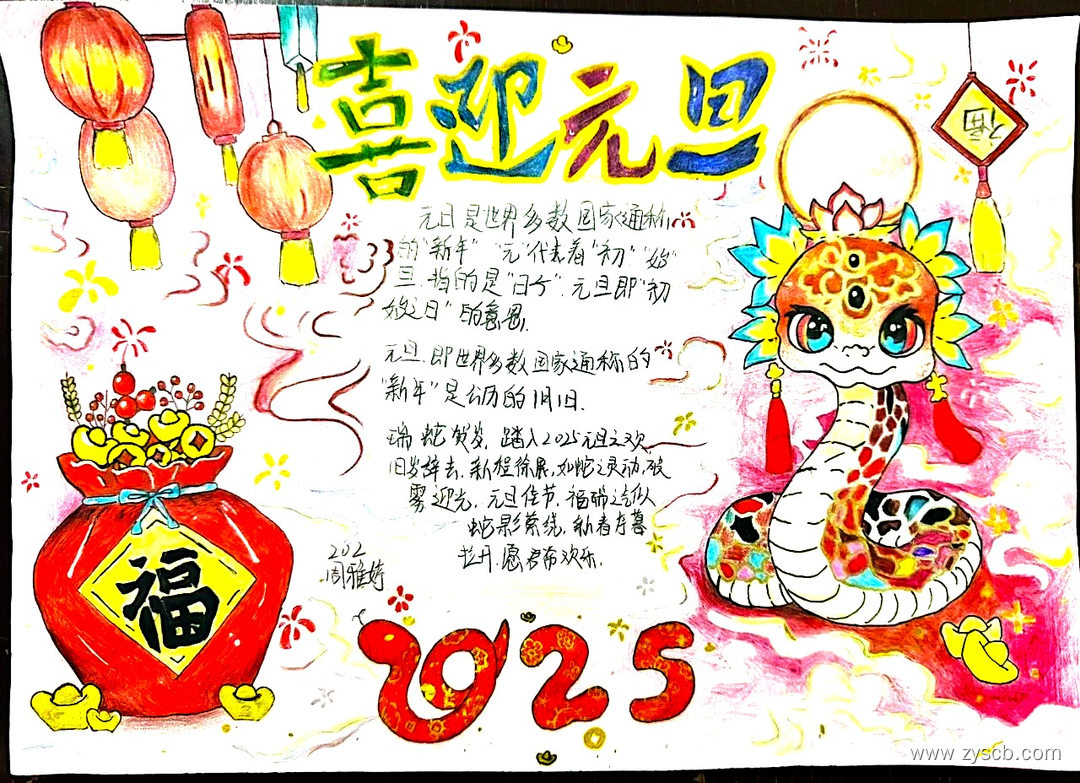 喜迎元旦
福
元旦是世界多数国家通称
的"新年" "元"代表着"初" "始"
旦.指的是"日子".元旦即"初
始之日"的意思.
元旦.即世界多数国家通称的
"新年"是公历的1月1日.
瑞蛇贺岁，踏入2025元旦之欢
旧岁辞去.新程徐展.如蛇之灵动.破
雾迎光.元旦佳节.福瑞之气似
蛇影萦绕.新春
愿君常欢乐.
202
周雅婷
福
2025
www.zyscb.com